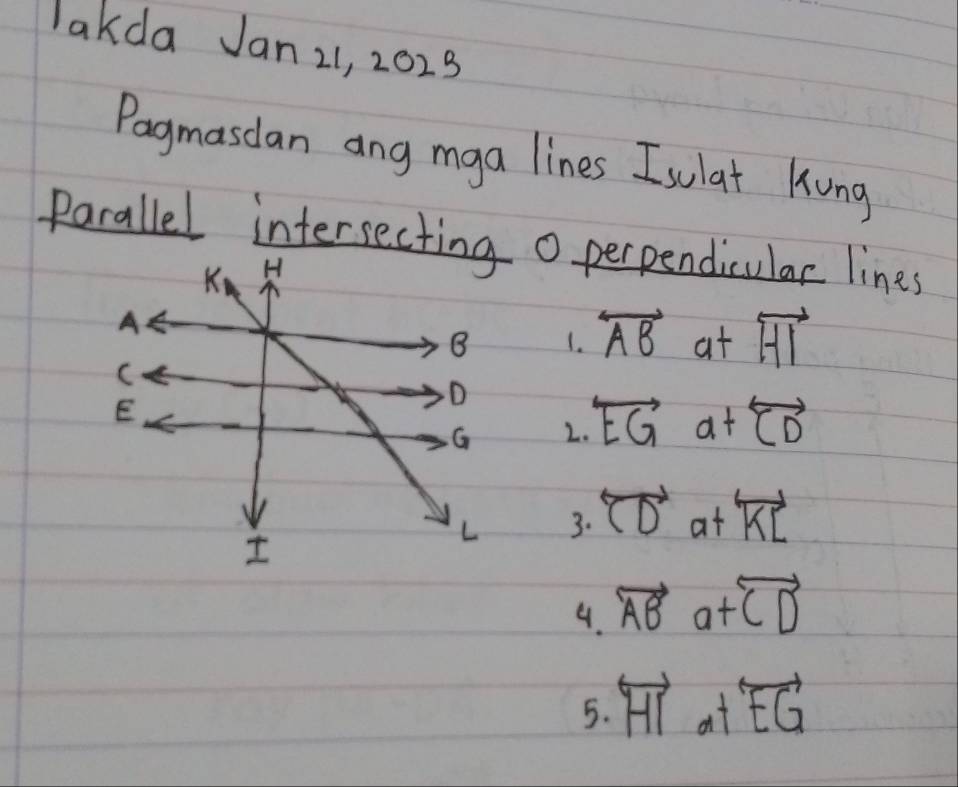 Takda Jan 21, 2023
Pagmasdan ang mga lines Isulat kung
Parallel intersecting o perpendicular lines
K H
A B
C D
E G
I L
1. AB at HI
2. EG at CD
3. CD at KL
4. AB at CD
5. HI at EG